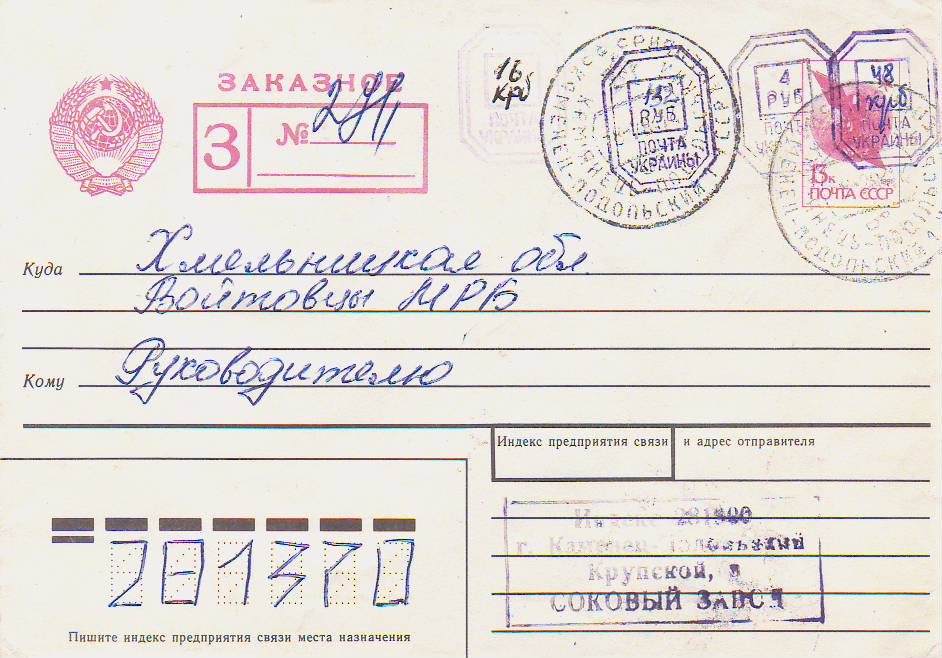 ЗАКАЗНОЕ
З №
16
крб
132
РУБ
ПОЧТА
УКРАИНЫ
КАМЕНЕЦ-ПОДОЛЬСКИЙ
4
РУБ
ПОЧТА
48
крб
ПОЧТА
УКРАИНЫ
13к
ПОЧТА СССР
Куда Хмельницкая обл
Войтовцы МРБ
Кому Руководителю
Индекс предприятия связи и адрес отправителя
Индекс 281900
г. Каменец-Подольский
Крупской,
СОКОВЫЙ ЗАВОД
281370
Пишите индекс предприятия связи места назначения